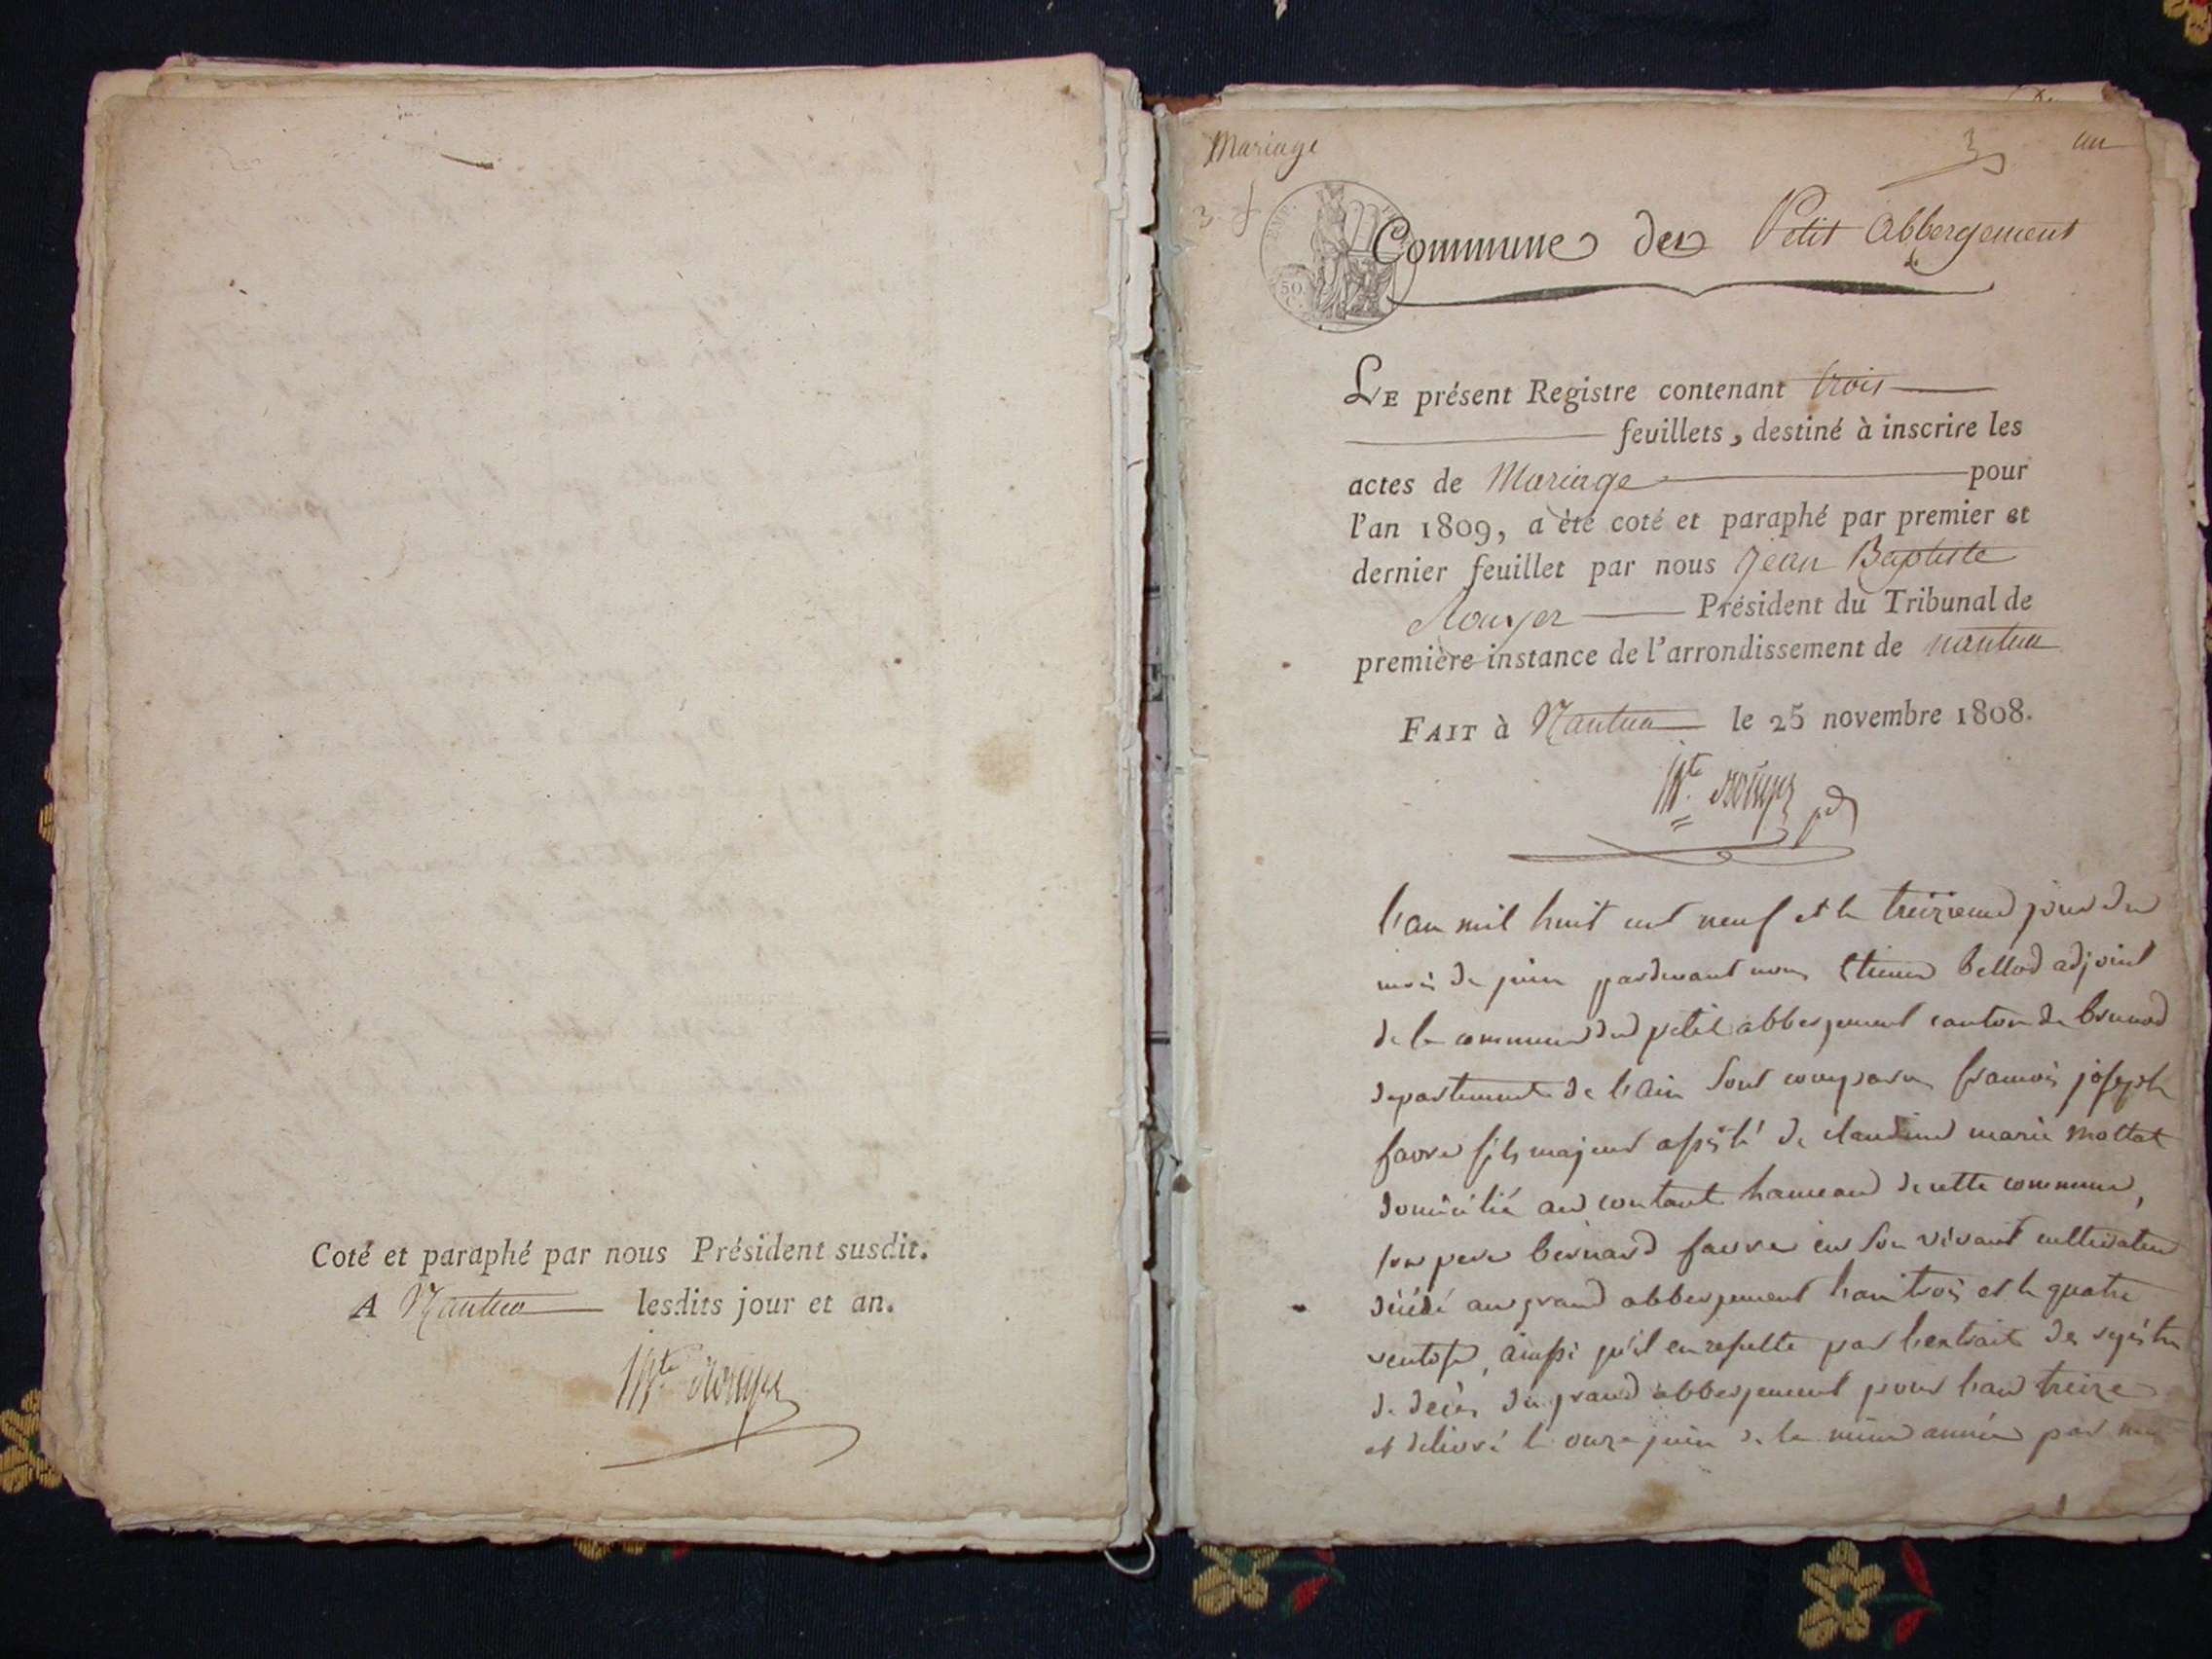 Coté et paraphé par nous Président susdit.
A Nantua lesdits jour et an.
Bte Rouyer
Mariage
3 un
3 f
EMP.
50
C.
Commune de Petit Abbergement
LE présent Registre contenant trois
feuillets, destiné à inscrire les
actes de Mariage pour
l'an 1809, a été coté et paraphé par premier et
dernier feuillet par nous Jean Baptiste
Rouyer Président du Tribunal de
première instance de l'arrondissement de nantua
FAIT à Nantua le 25 novembre 1808.
Bte Rouyer pdt
l'an mil huit cent neuf et le treizieme jour du
mois de juin pardevant nous Etienne bellod adjoint
de la commune du petit abbergement canton de brenod
departement de l'ain sont comparus francois joseph
favre fils majeur assisté de claudine marie mottat
domicilié au coutant hameau de cette commune,
son pere bernard favre en son vivant cultivateur
décédé au grand abbergement l'an trois et le quatre
ventose, ainssi qu'il en resulte par l'extrait des registres
de decès du grand abbergement pour l'an treize
et délivré le onze juin de la même année par